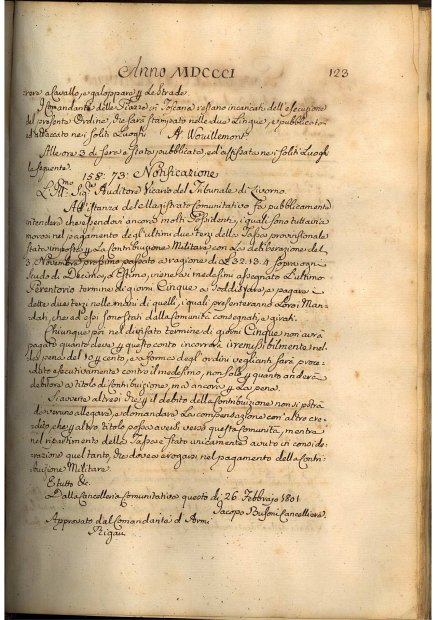 Anno MDCCCI 123
rere a Cavallo, e galoppare p. le strade.
I Comandanti delle Piazze in Toscana restano incaricati dell'esecuzione
del presente Ordine, che sarà stampato nelle due Lingue, e pubblicato
ed attaccato nei soliti Luoghi. A Wouillemont
Alle ore 3 di sera è stata pubblicata, ed affissata nei soliti Luoghi
la seguente.
158: 73: Notificazione
L'Ill.mo Sig.re Auditore Vicario del Tribunale di Livorno.
All'istanza del Magistrato Comunitativo fa pubblicamente
intendere che essendovi ancora molti Possidenti, i quali sono tuttavia
morosi nel pagamento degli ultimi due terzi della Tassa provvisionale
stata imposta p. la Contribuzione Militare con la deliberazione del
3 Novembre prossimo passato a ragione di £ 32.13.4 sopra ogni
scudo di Decimo, e Estimo, viene ai medesimi assegnato l'ultimo
Perentorio termine di giorni Cinque a soddisfare, e pagare i
detti due terzi nelle mani di quelli, i quali presenteranno loro i Man-
dati, che ad essi sono stati dalla Comunità consegnati, e girati.
Chiunque poi nel divisato termine di giorni Cinque non avrà
pagato quanto deve p. questo conto incorrerà irremissibilmente nel-
la pena del 10 p. cento, e a forma degl'ordini veglianti sarà proce-
duto esecutivamente contro il medesimo, non solo p. quanto anderà
debitore a titolo di Contribuzione, ma ancora p. la pena.
Si avverte altresì che p. il debito della Contribuzione non si potrà
da veruno allegare, e domandare la compensazione con altro cre-
dito, che p. altro titolo possa aversi verso questa Comunità, mentre
nel ripartimento della Tassa è stato unicamente avuto in conside-
razione quel tanto, che doveva erogarsi nel pagamento della Contri-
buzione Militare.
E tutto &c.
Dalla Cancelleria Comunitativa questo dì 26 Febbrajo 1801
Jacopo Busoni Cancelliere
Approvato dal Comandante d'Armi
Rigau